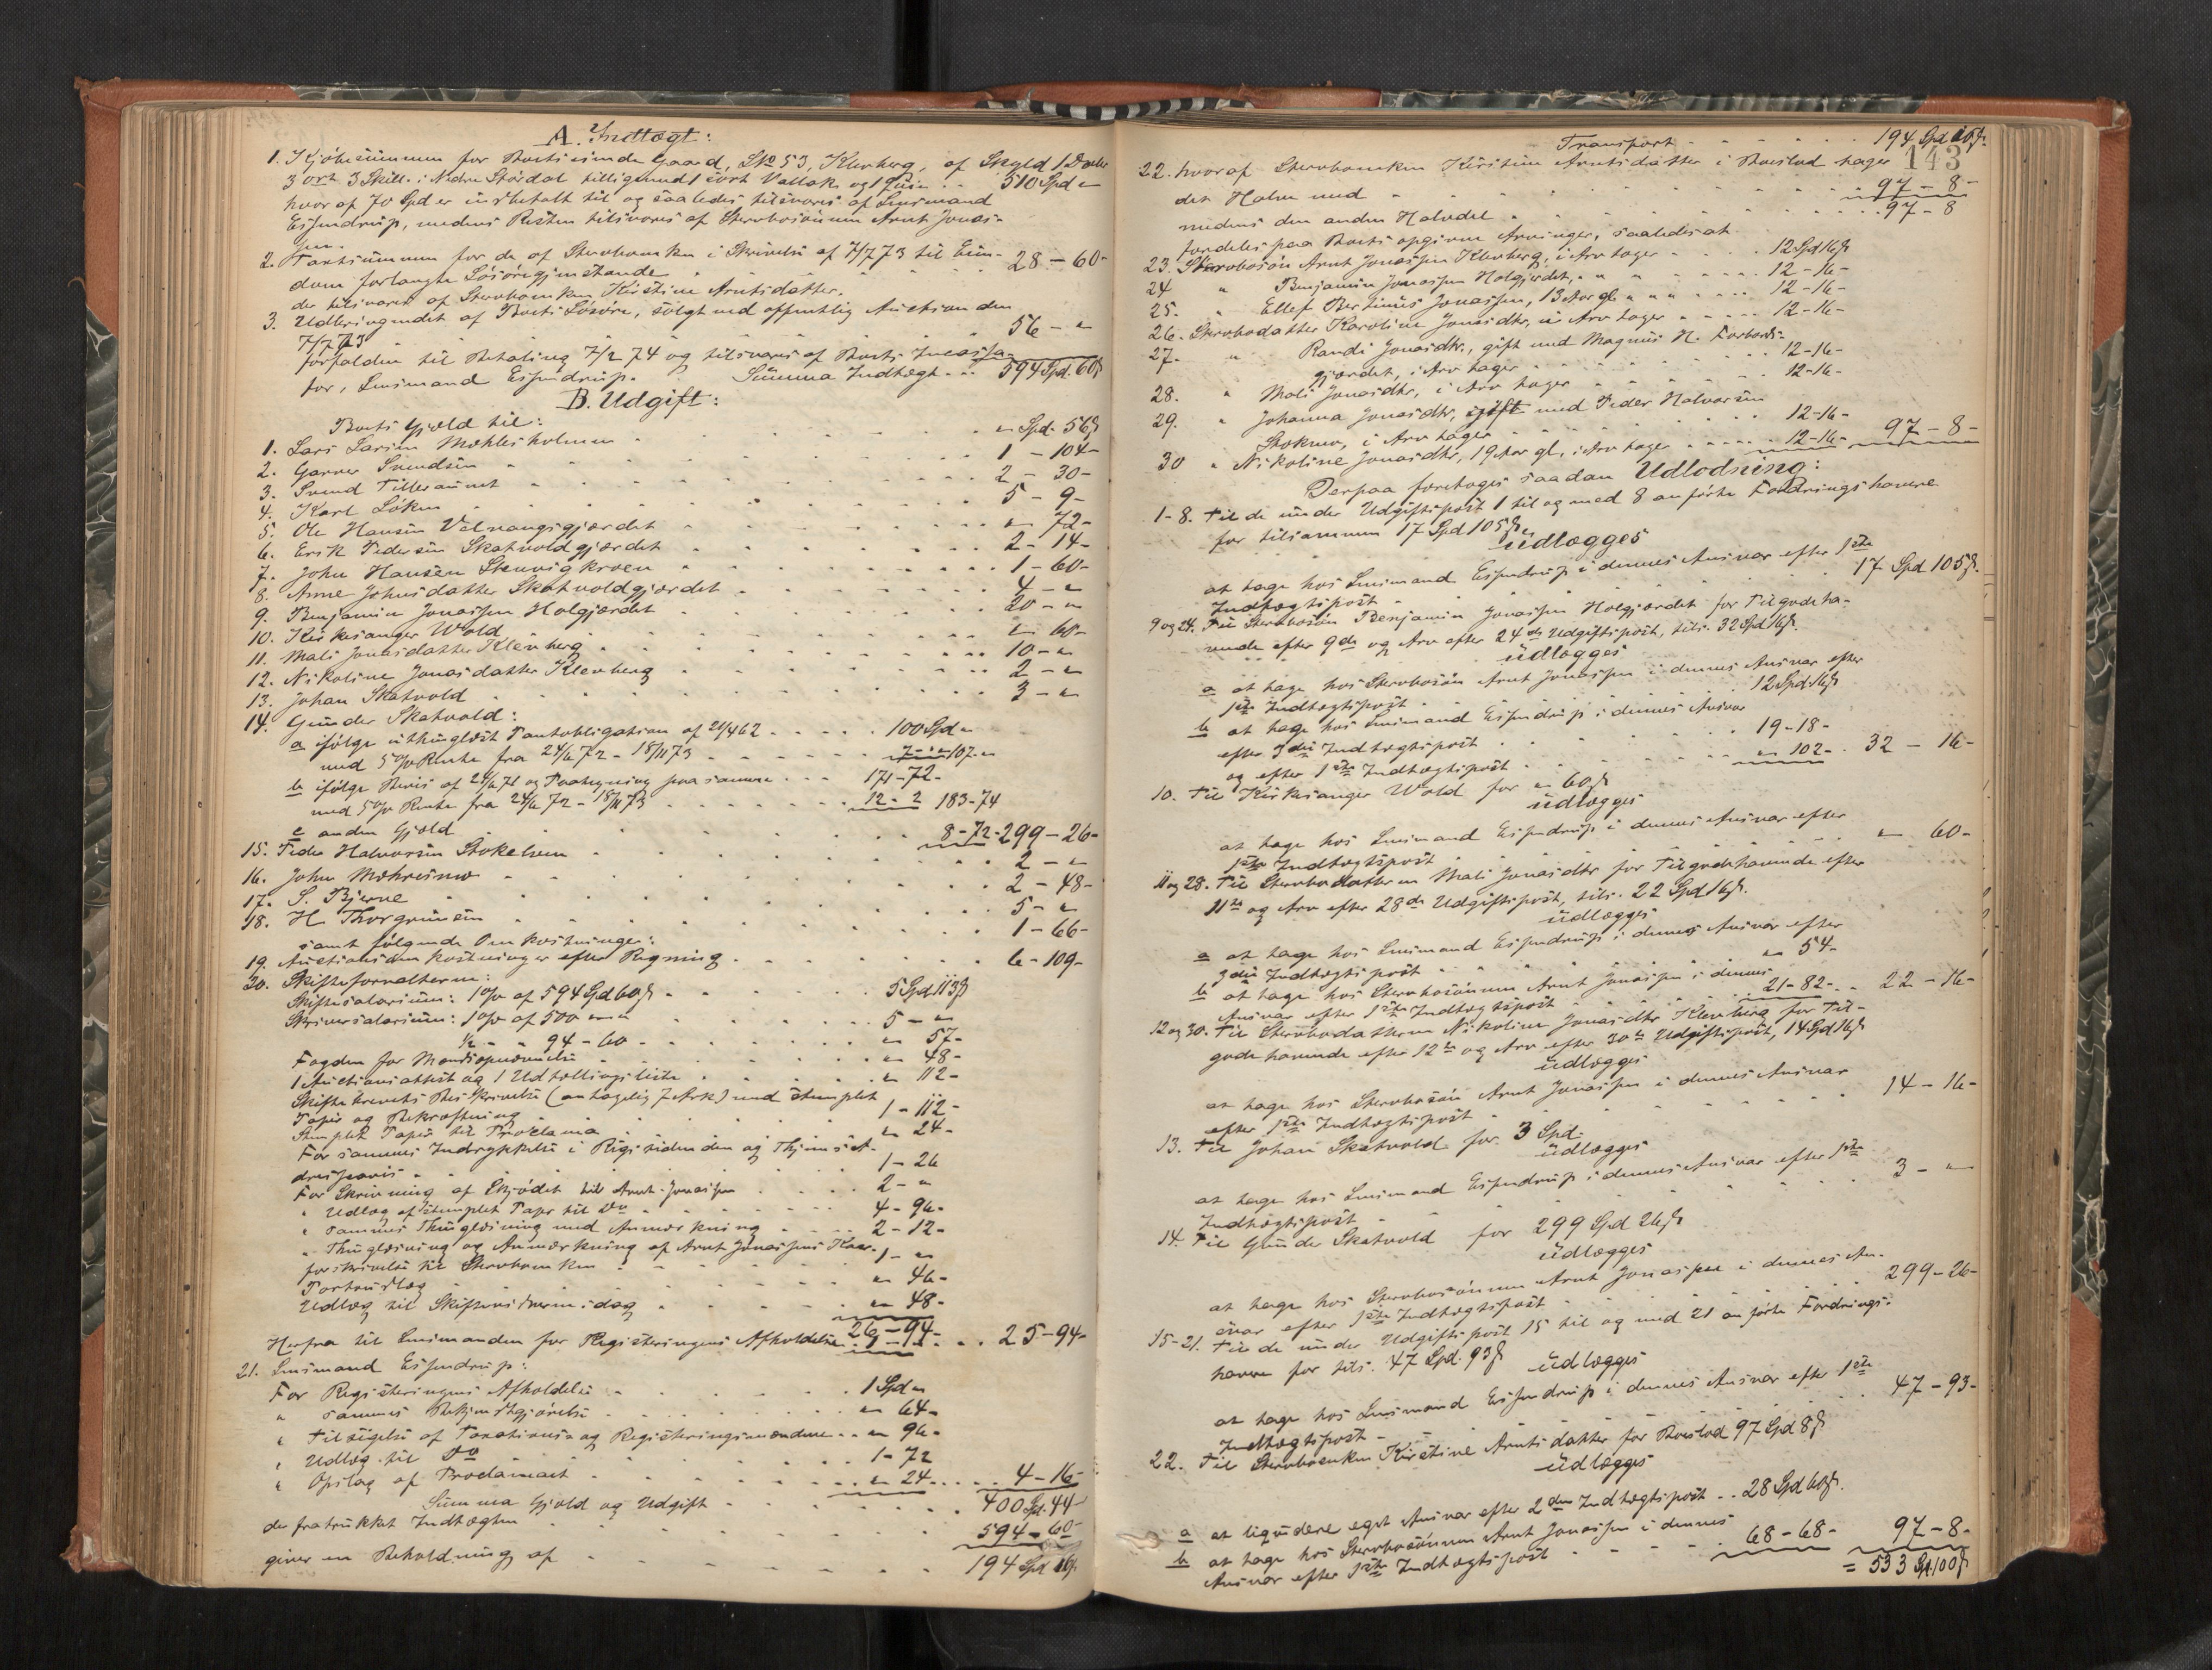 A. Indtægt:
1. Kjöbesummen for Boets eiende Gaard, LNo 53, Klevberg, af Skyld 1 Daler
3 ort 3 Skill. i Nedre Stördal tilligemed 1 sört Vallak og 1 " 510 Spd "
hvoraf 70 Spd er indbetalt til og saaledes tilsvares af Lensmand
Eisendrup, medens Resten tilsvares af Stervbosönnen Arnt Jonas-
sen.
2. Taxtsummen for de af Stervboenken i Skrivelse af 7/7 73 til Eien-
dom forlangte Lösöregjenstande 28 - 60 -
der tilsvares af Stervboenken Kirstine Arntsdatter.
3. Udbringendet af Boets Lösöre, solgt ved offentlig Auction den
7/7 73 56 - "
forfalden til Betaling 7/2 74 og tilsvares af Boets Incassa-
tor, Lensmand Eisendrup. Summa Indtægt 594 Spd. 60 ß
B. Udgift:
Boets Gjæld til:
1. Lars Larsen Mæhlesholmen " Spd. 56 ß
2. Garner Svendsen 1 - 104 -
3. Svend Tilleraunet 2 - 30 -
4. Karl Löken 5 - 9 -
5. Ole Hansen Velvangsgjærdet " 72 -
6. Erik Pedersen Skatvoldgjærdet 2 - 14 -
7. John Hansen Stenvigkroen 1 - 60 -
8. Anne Johnsdatter Skatvoldgjærdet 4 - "
9. Benjamin Jonassen Holgjærdet 20 - "
10. Kirkesanger Wold " 60 -
11. Mali Jonasdatter Klevberg 10 - "
12. Nikoline Jonasdatter Klevberg 2 - "
13. Johan Skatvold 3 - "
14. Gunder Skatvold:
a ifölge uthinglæst Pantobligation af 21/4 62 100 Spd "
med 5 o/o Rente fra 24/6 72 - 18/11 73 7 - " 107 - "
b ifölge Bevis af 24/6 71 og Paategning paa samme 171 - 72 -
med 5 o/o Rente fra 24/6 72 - 18/11 73 12 - 2 183 - 74
c anden Gjæld 8 - 72 - 299 - 26 -
15. Peder Halvorsen Stokelven 2 - "
16. John Mæhreimo 2 - 48 -
17. S. Bjerve 5 - "
18. H. Thorgrimsen 1 - 66 -
samt fölgende Omkostninger:
19. Auctionsomkostninger efter Regning 6 - 109 -
20. Skifteforvalteren:
Skiftesalarium: 1 o/o af 594 Spd 60 ß 5 Spd 113 ß
Skriversalarium: 1 o/o af 500 " " 5 - "
1/2 - " 94 - 60 " 57 -
Fogden for Mændsopnævnelse " 48 -
1 Auctionsattest og 1 Udtællingsliste " 112 -
Skiftebrevets Beskrivelse (antagelig 7 Ark) med stemplet
Papir og Bekræftning 1 - 112 -
Stemplet Papir til Proclama " 24 -
For sammes Indrykkelse i Rigstidenden og Thjems ad-
dresseavis 1 - 26
For Skrivning af Skjödet til Arnt Jonassen 2 - "
" Udlæg af stemplet Papir til Do 4 - 96 -
" sammes Thinglæsning med Anmærkning 2 - 12 -
" Thinglæsning og Anmærkning af Arnt Jonassens Kaar-
forskrivelse til Stervboenken 1 - "
Portoudlæg " 46 -
Udlæg til Skiftevidnerne idag " 48 -
26 - 94 -
Herfra til Lensmanden for Registreringens Afholdelse 1 - " 25 - 94 -
21. Lensmand Eisendrup:
For Registreringens Afholdelse 1 Spd "
" sammes Bekjendtgjörelse " 64 -
" Tilsigelse af Taxations- og Registreringsmændene " 96 -
" Udlæg til Do 1 - 72
" Opslag af Proclamaet " 24 4 - 16
Summa Gjæld og Udgift 400 Spd. 44 -
der fratrukket Indtægten 594 - 60 -
giver en Beholdning af 194 Spd 16 ß.
143
Transport 194 Spd 16 ß.
22. hvoraf Stervboenken Kirstine Arntsdatter i Boeslod tager
det Halve med 97 - 8 -
medens den anden Halvdel 97 - 8
fordeles paa Boets opgivne Arvinger, saaledes at
23. Stervbosön Arnt Jonassen Klevberg, i Arv tager 12 Spd 16 ß
24 " Benjamin Jonassen Holgjerdet, " " " 12 - 16 -
25. " Ellef Bertinus Jonassen, 13 Aar gl. " " " 12 - 16 -
26. Stervbodatter Karoline Jonasdtr, i Arv tager 12 - 16 -
27. " Randi Jonasdtr., gift med Magnus H. Forbords-
gjærdet, i Arv tager 12 - 16 -
28. " Mali Jonasdtr, i Arv tager 12 - 16 -
29. " Johanna Jonasdtr, gift med Peder Halvorsen
Stokmo, i Arv tager 12 - 16 -
30 " Nikoline Jonasdtr, 19 Aar gl., i Arv tager 12 - 16 - 97 - 8 -
Derpaa foretages saadan Udlodning:
1-8. Til de under Udgiftspost 1 til og med 8 anförte Fordringshavere
for tilsammen 17 Spd 105 ß
udlægges
at tage hos Lensmand Eisendrup i dennes Ansvar efter 1ste
Indtægtspost 17 Spd 105 ß.
9 og 24. Til Stervbosön Benjamin Jonassen Holgjærdet for Tilgodeha-
vende efter 9de og Arv efter 24de Udgiftspost, tils. 32 Spd 16 ß.
udlægges
a at tage hos Stervbosön Arnt Jonassen i dennes Ansvar efter
1ste Indtægtspost 12 Spd 16 ß
b at tage hos Lensmand Eisendrup i dennes Ansvar
efter 3die Indtægtspost 19 - 18 -
og efter 1ste Indtægtspost " 102 - 32 - 16 -
10. Til Kirkesanger Wold for " 60 ß
udlægges
at tage hos Lensmand Eisendrup i dennes Ansvar efter
1ste Indtægtspost " 60 -
11 og 28. Til Stervbodatteren Mali Jonasdtr for Tilgodehavende efter
11te og Arv efter 28de Udgiftspost, tils. 22 Spd 16 ß.
udlægges
a at tage hos Lensmand Eisendrup i dennes Ansvar efter
3die Indtægtspost " 54 -
b at tage hos Stervbosönnen Arnt Jonassen i dennes
Ansvar efter 1ste Indtægtspost 21 - 82 - 22 - 16 -
12 og 30. Til Stervbodatteren Nikoline Jonasdtr Klevberg for Til-
godehavende efter 12te og Arv efter 30te Udgiftspost, 14 Spd 16 ß
udlægges
at tage hos Stervbosön Arnt Jonassen i dennes Ansvar
efter 1ste Indtægtspost 14 - 16 -
13. Til Johan Skatvold for 3 Spd.
udlægges
at tage hos Lensmand Eisendrup i dennes Ansvar efter 1ste
Indtægtspost 3 - "
14. Til Gunder Skatvold for 299 Spd 26 ß
udlægges
at tage hos Stervbosönnen Arnt Jonassen i dennes An-
svar efter 1ste Indtægtspost 299 - 26 -
15-21. Til de under Udgiftspost 15 til og med 21 anförte Fordrings-
havere for tils. 47 Spd. 93 ß
udlægges
at tage hos Lensmand Eisendrup i dennes Ansvar efter 1ste
Indtægtspost 47 - 93 -
22. Til Stervboenken Kirstine Arntsdatter for Boeslod 97 Spd 8 ß
udlægges
a at liquidere eget Ansvar efter 2den Indtægtspost 28 Spd 60 ß.
b at tage hos Stervbosönnen Arnt Jonassen i dennes
Ansvar efter 1ste Indtægtspost 68 - 68 - 97 - 8 -
= 533 Spd. 100 ß